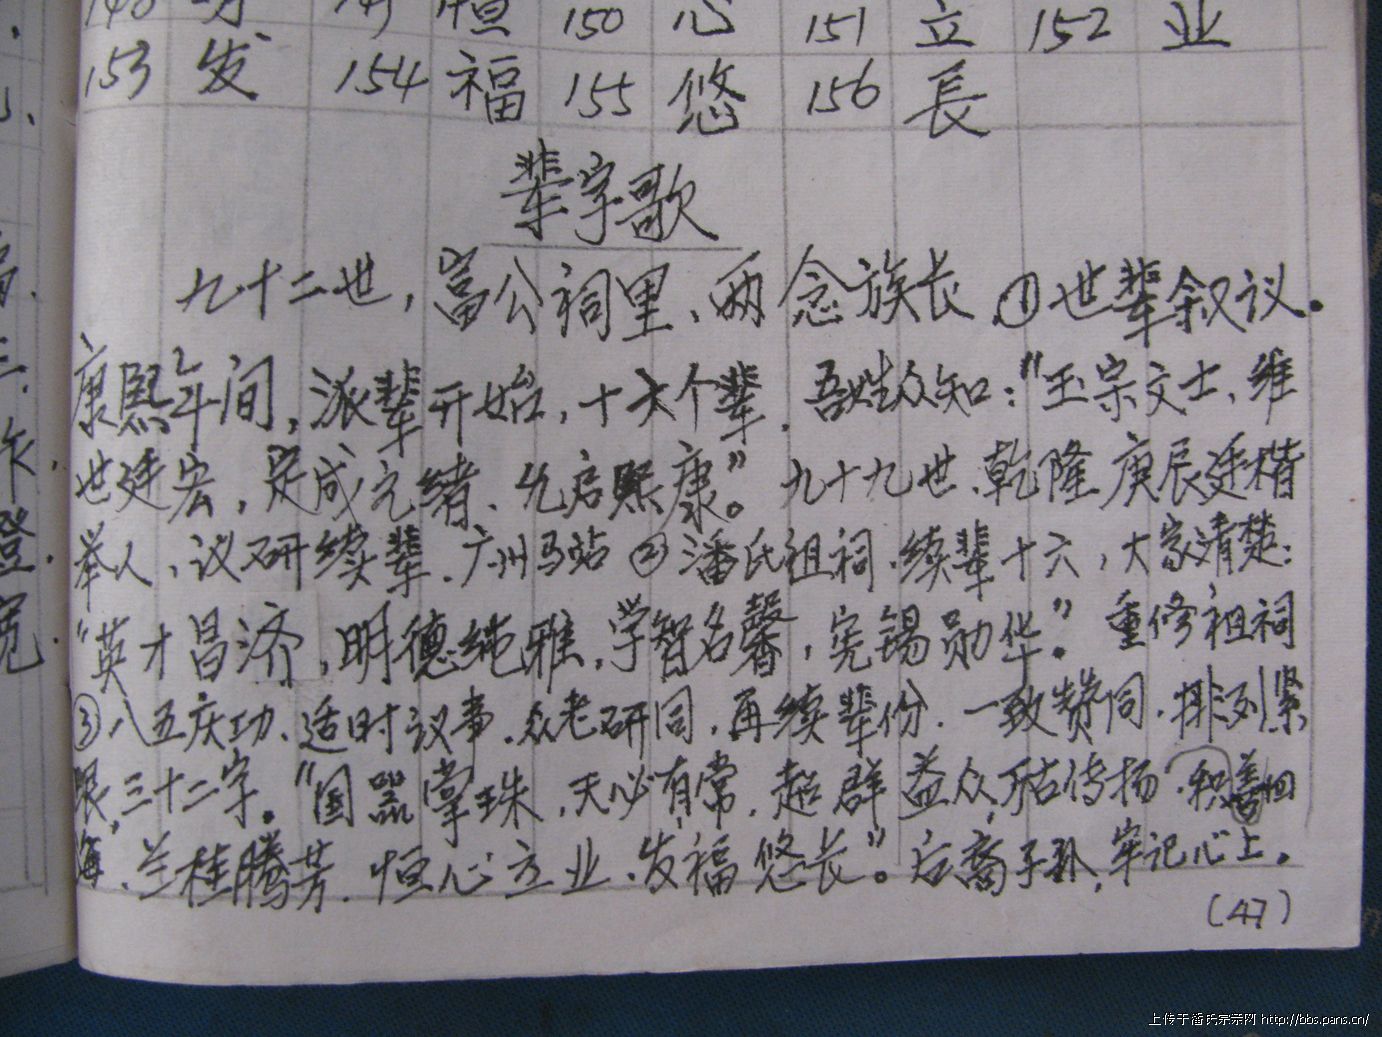 150 心 151 立 152 业
153 发 154 福 155 悠 156 長
辈字歌
九十二世，富公祠里、两念族长、①世辈叙议。
康熙年间，派辈开始，十六个辈，吾姓众知："玉宗文士、维
世廷宏，定成元绪、允启熙康"。九十九世、乾隆庚辰廷楷
举人、议研续辈、广州马站②潘氏祖祠、续辈十六，大家清楚：
"英才昌济，明德纯雅，学智名馨，宪锡勋华。"重修祖祠
③八五庆功、适时议事、众老研同，再续辈份、一致赞同、排列紧
跟，三十二字。"国器掌珠，天必有常，超群益众，万古传扬、积善如
海、兰桂腾芳、恒心立业、发福悠长"。后裔子孙，牢记心上。
(47)
上传于潘氏宗亲网 http://bbs.pans.cn/